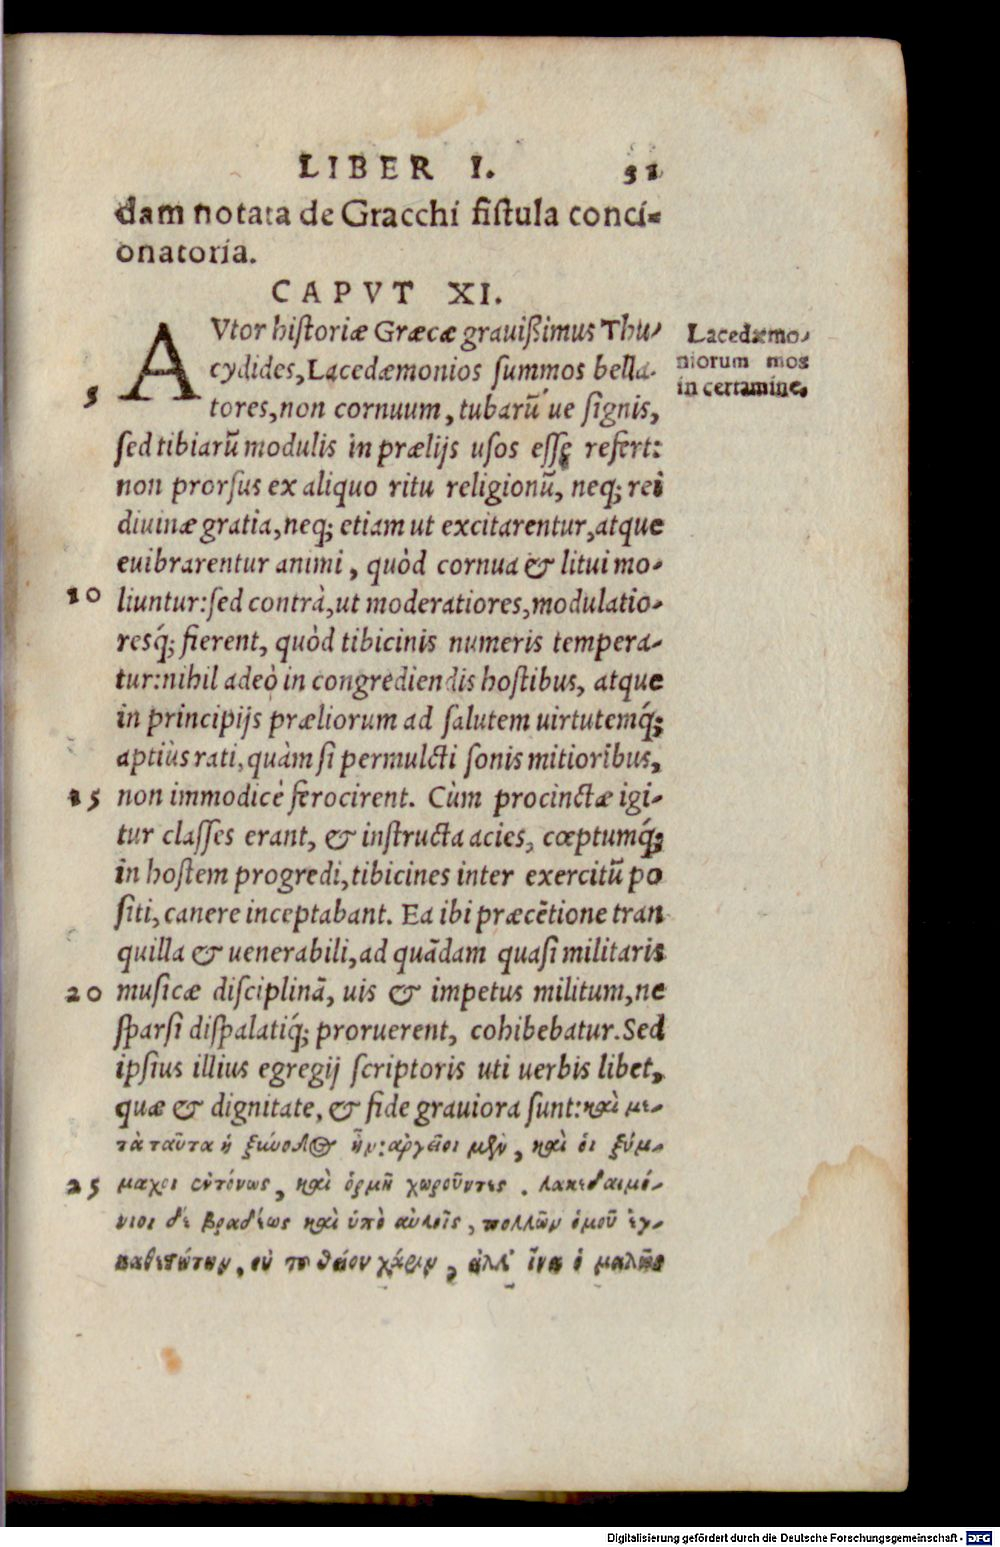 LIBER I. 31
dam notata de Gracchi fistula conci-
onatoria.
CAPVT XI.
AVtor historiæ Græcæ grauißimus Thu-
cydides, Lacedæmonios summos bella-
5 tores, non cornuum, tubarũ ue signis,
sed tibiarũ modulis in prælijs usos esse refert:
non prorsus ex aliquo ritu religionũ, neq; rei
diuinæ gratia, neq; etiam ut excitarentur, atque
euibrarentur animi, quòd cornua & litui mo-
10 liuntur: sed contrà, ut moderatiores, modulatio-
resq́; fierent, quòd tibicinis numeris tempera-
tur: nihil adeò in congrediendis hostibus, atque
in principijs præliorum ad salutem uirtutemq́;
aptiùs rati, quàm si permulcti sonis mitioribus,
15 non immodicè ferocirent. Cùm procinctæ igi-
tur classes erant, & instructa acies, cœptumq́;
in hostem progredi, tibicines inter exercitũ po
siti, canere inceptabant. Ea ibi præcẽtione tran
quilla & uenerabili, ad quãdam quasi militaris
20 musicæ disciplinã, uis & impetus militum, ne
sparsi dispalatiq́; proruerent, cohibebatur. Sed
ipsius illius egregij scriptoris uti uerbis libet,
quæ & dignitate, & fide grauiora sunt: καὶ με-
τὰ ταῦτα ἡ ξύνοδος ἦν: ἀργεῖοι μὲν, καὶ οἱ ξύμ-
25 μαχοι ἐντόνως, καὶ ὀργῇ χωροῦντες. λακεδαιμό-
νιοι δὲ βραδέως καὶ ὑπὸ αὐλοῖς, πολλῶν ὁμοῦ ἐγ-
καθεστώτων, οὐ τοῦ θείου χάριν, ἀλλ' ἵνα ὁμαλῶς
Lacedæmo-
niorum mos
in certamine.
Digitalisierung gefördert durch die Deutsche Forschungsgemeinschaft - DFG